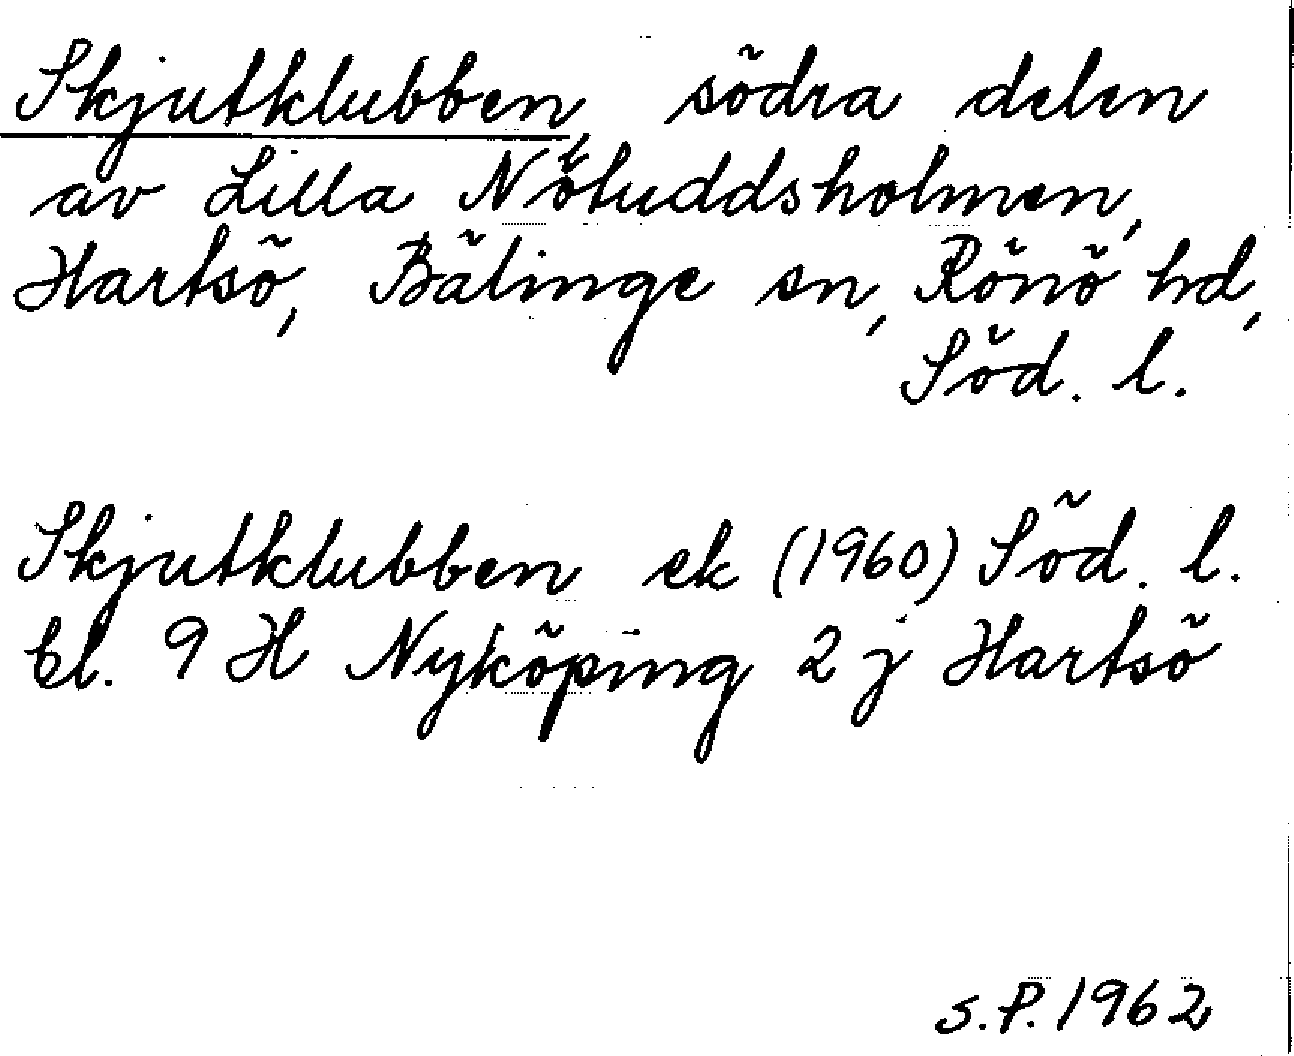 Skjutklubben, södra delen
av Lilla Nötuddsholmen,
Hartsö, Bälinge sn, Rönö hd,
Söd. l.
Skjutklubben ek (1960) Söd. l.
bl. 9 H Nyköping 2 j Hartsö
S.P. 1962